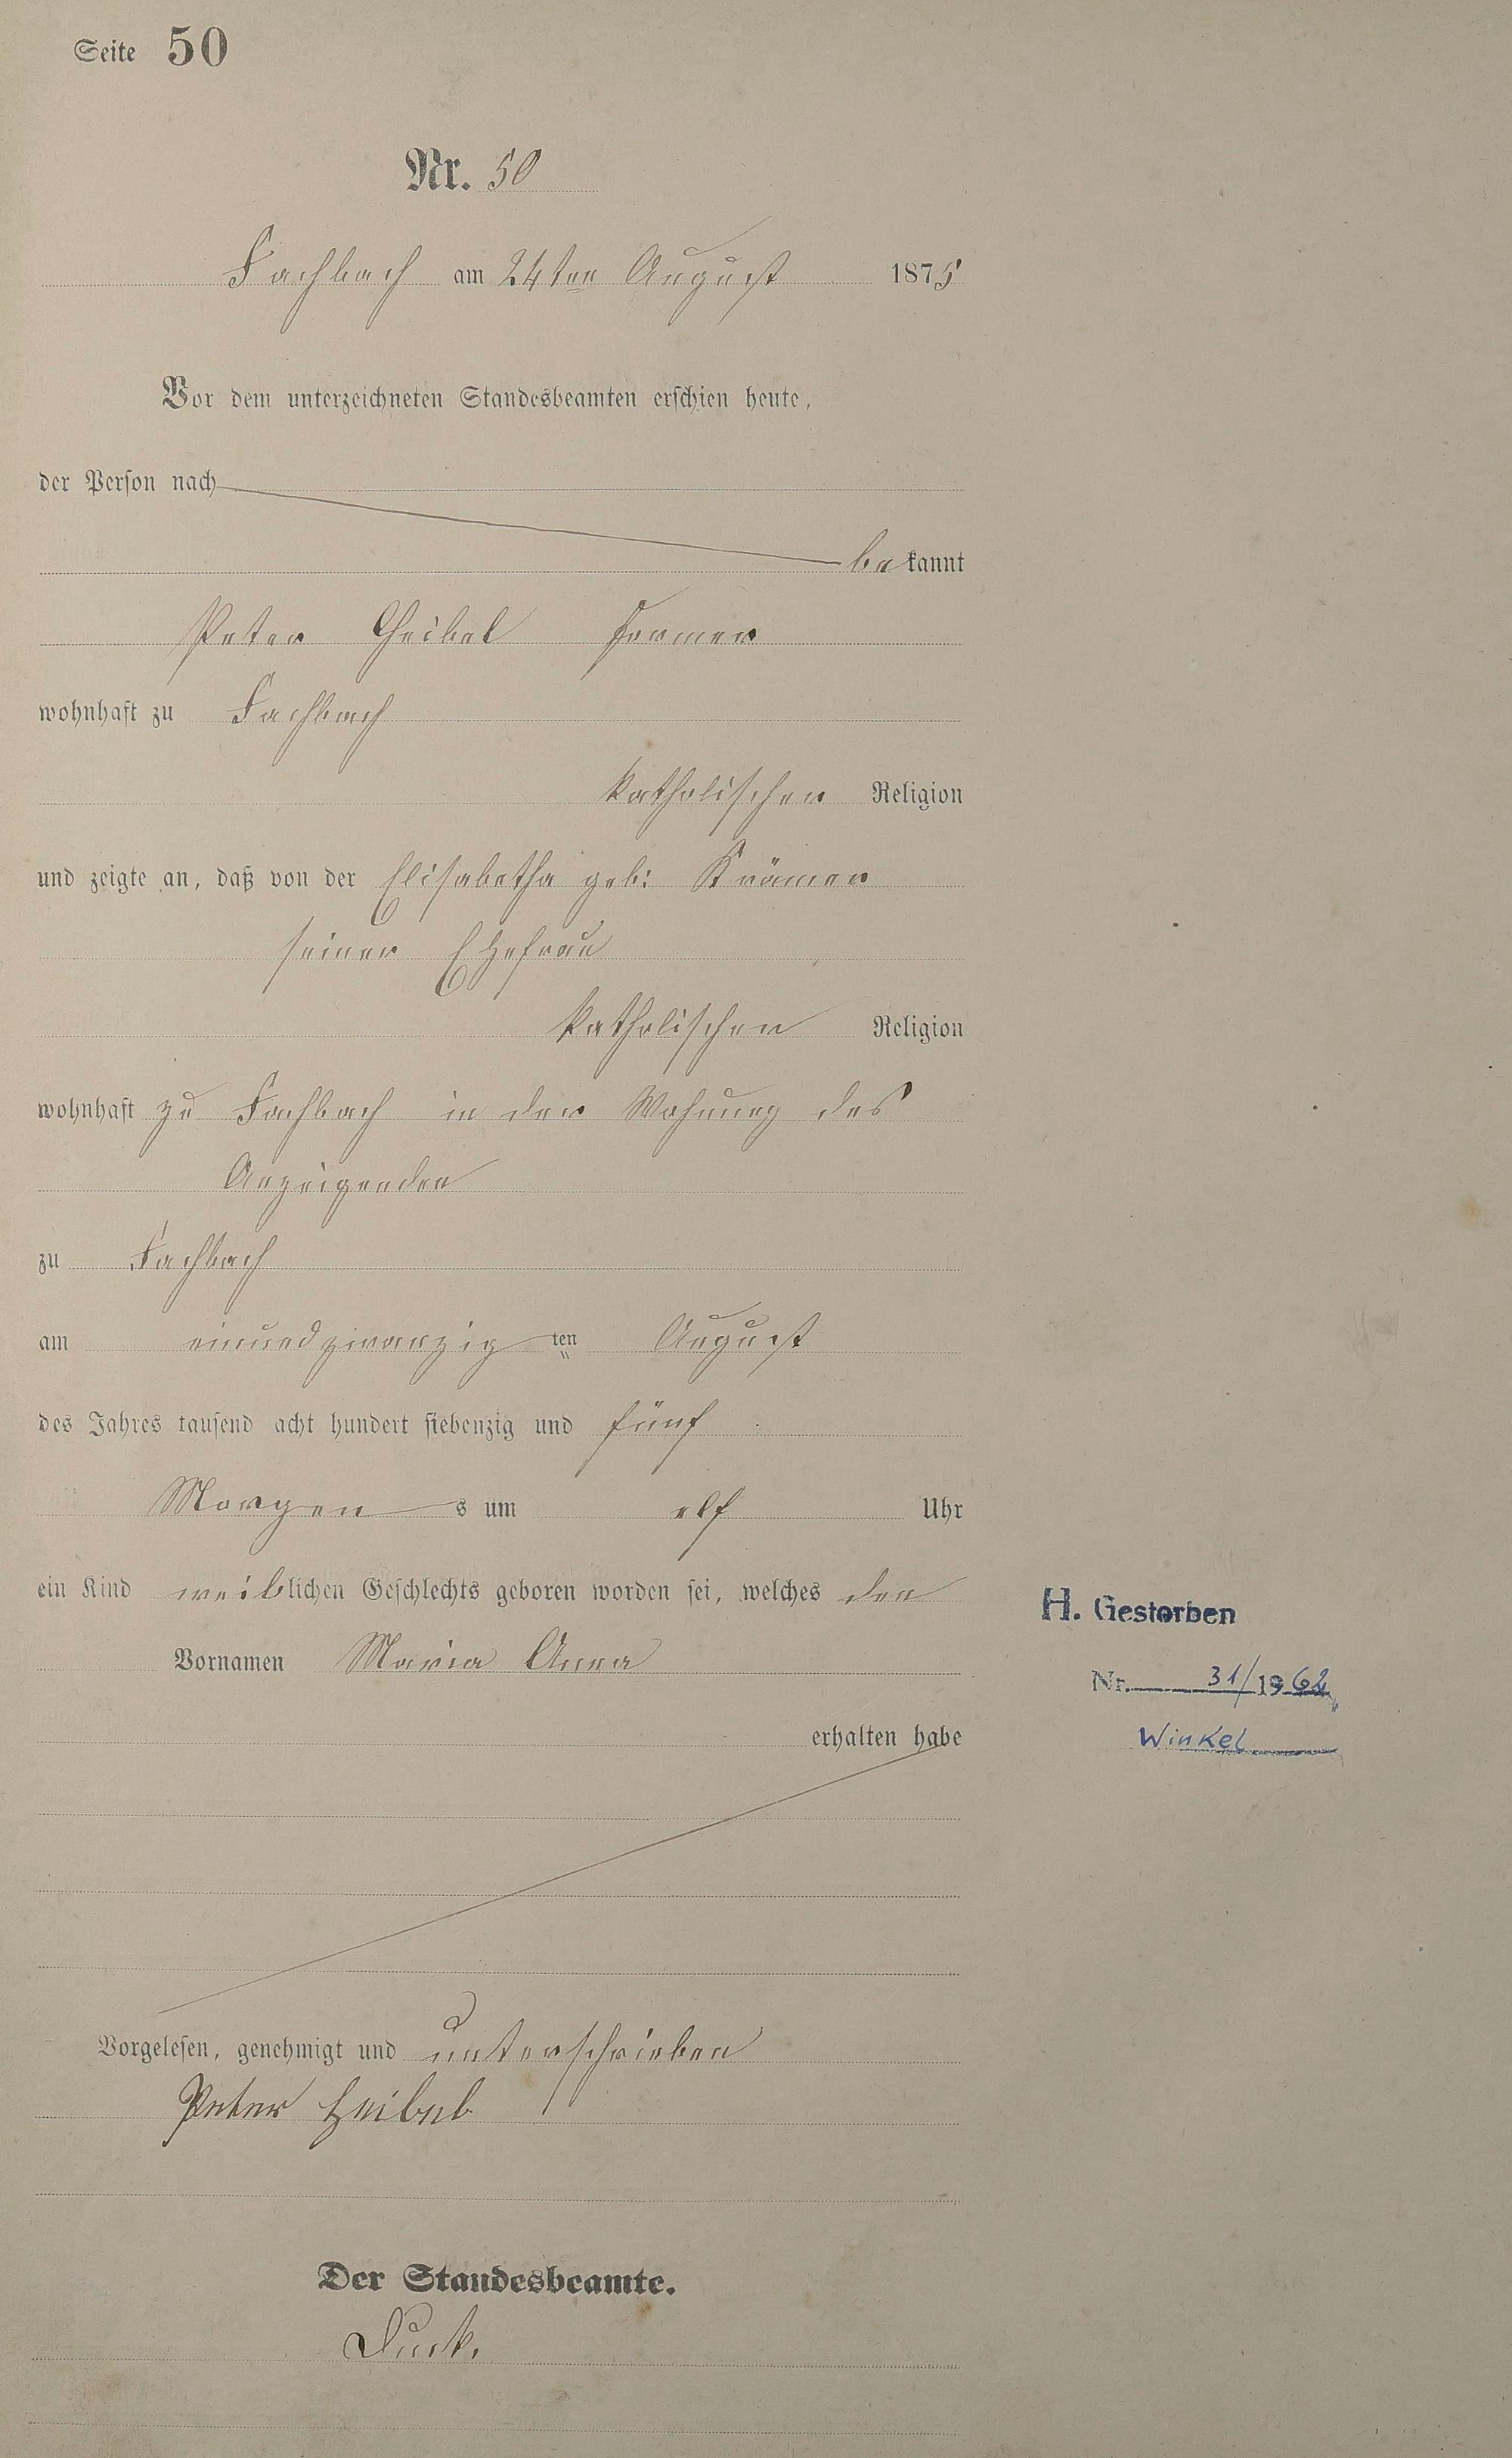 Seite 50
Nr. 50
Fachbach am 24ten August 1875
Vor dem unterzeichneten Standesbeamten erschien heute,
der Person nach
bekannt
Peter Heibel Former
wohnhaft zu Fachbach
katholischer Religion
und zeigte an, daß von der Elisabetha geb: Krämer
seiner Ehefrau
katholischer Religion
wohnhaft zu Fachbach in der Wohnung des
Anzeigenden
zu Fachbach
am einundzwanzig ten August
des Jahres tausend acht hundert siebenzig und fünf
Morgen s um elf Uhr
ein Kind weiblichen Geschlechts geboren worden sei, welches den
Vornamen Maria Anna
erhalten habe
H. Gestorben
Nr. 31/1962
Winkel
Vorgelesen, genehmigt und unterschrieben
Peter Heibel
Der Standesbeamte.